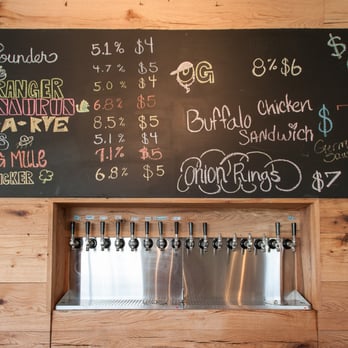 ounder 5.1% $4
4.7% $5
RANGER
SAURUS 6.8% $5
A-RYE 8.5% $5
5.1% $4
G MULE 7.1% $5
CKER 6.8% $5
OG 8% $6
Buffalo Chicken
SANDWICH $
Onion Rings $7
$